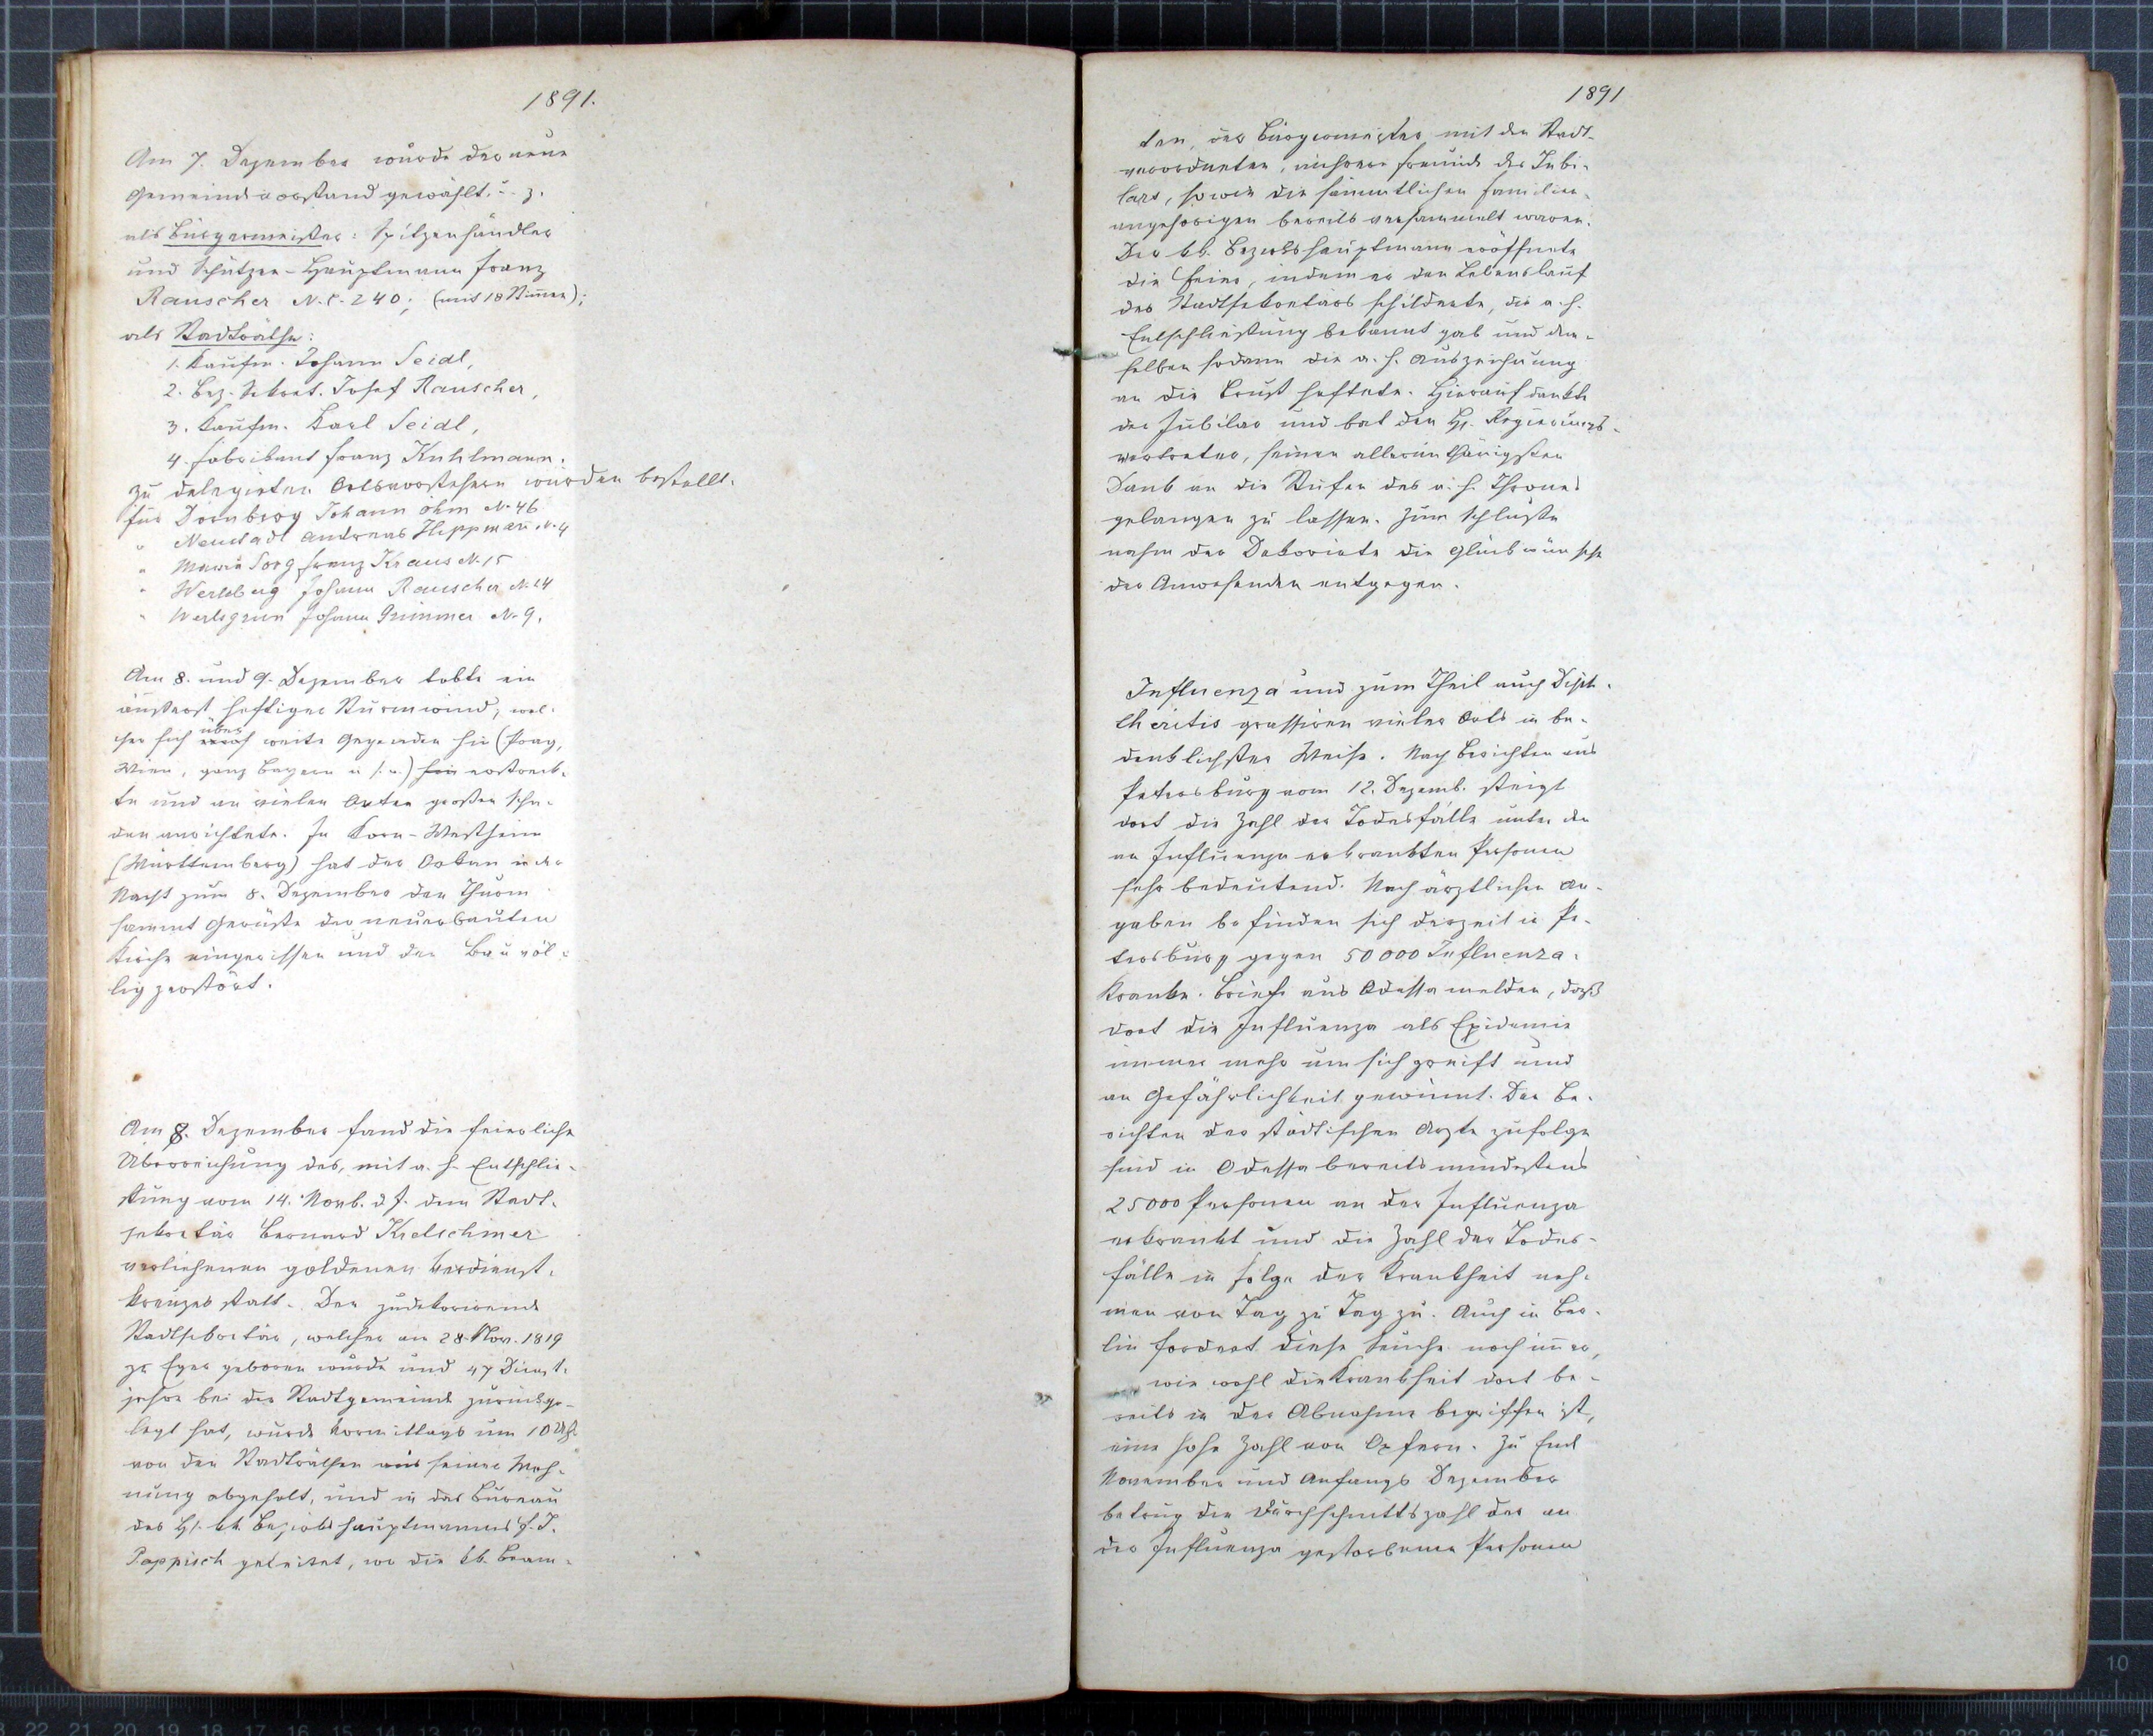 1891.
Am 7. Dezember wurde der neue
Gemeindevorstand gewählt. u. z.
als Bürgermeister: Spitzenhändler
und Schützen-Hauptmann Franz
Rauscher N.C. 240; (mit 18 Stimmen);
als Stadträthe:
1. Kaufm. Johann Seidl,
2. Bez. Sekret. Josef Rauscher,
3. Kaufm. Karl Seidl,
4. Fabrikant Franz Kuhlmann.
Zu delegirten Ortsvorstehern wurden bestellt.
für Dürnberg Johann Öhm N. 46
" Neustadt Andreas Hippmañ N. 4
" Maria Sorg Franz Kraus N. 15
" Werlsberg Johann Rauscher N. 24
" Werlsgrün Johann Grimmer N. 9.
Am 8. und 9. Dezember tobte ein
äußerst heftiger Sturmwind, wel-
cher sich über weite Gegenden hin (Prag,
Wien, ganz Bayern u. s. w.) hin erstreck-
te und an vielen Orten großen Scha-
den anrichtete. In Korn-Westheim
(Württemberg) hat der Orkan in der
Nacht zum 8. Dezember den Thurm
sammt Gerüste der neuerbauten
Kirche eingerissen und den Bau völ-
lig zerstört.
Am 8. Dezember fand die feierliche
Überreichung des, mit a. h. Entschlie-
ßung vom 14. Novb. d J. dem Stadt-
sekretär Bernard Kretschmer
verliehenen goldenen Verdienst-
kreuzes statt. Der zudekorirende
Stadtsekretär, welcher am 28. Nov. 1819
zu Eger geboren wurde und 47 Dienst-
jahre bei der Stadtgemeinde zurückge-
legt hat, wurde Vormittags um 10 Uhr
von den Stadträthen aus seiner Woh-
nung abgeholt, und in das Bureau
des H. kk. Bezirkshauptmannes F. J.
Poppisch geleitet, wo die kk. Beam-
1891
ten, der Bürgermeister mit den Stadt-
verordneten, mehrere Freunde des Jubi-
lars, sowie die sämmtlichen Familien-
angehörigen bereits versammelt waren.
Der kk. Bezirkshauptmann eröffnete
die Feier, indem er den Lebenslauf
des Stadtsekretärs schilderte, die a. h.
Entschließung bekannt gab und dem-
selben sodann die a. h. Auszeichnung
an die Brust heftete. Hierauf dankte
der Jubilar und bat den H. Regierungs-
vertreter, seinen allerunthänigsten
Dank an die Stufen des a. h. Thrones
gelangen zu lassen. Zum Schluße
nahm der Dekorirte die Glückwünsche
der Anwesenden entgegen.
Influenza und zum Theil auch Diph-
theritis grassiren vieler Orts in be-
denklichster Weise. Nach Berichten aus
Petersburg vom 12. Dezemb. steigt
dort die Zahl der Todesfälle unter den
an Influenza erkrankten Personen
sehr bedeutend. Nach ärztlichen An-
gaben befinden sich derzeit in Pe-
tersburg gegen 50000 Influenza-
Kranke. Briefe aus Odessa melden, daß
dort die Influenza als Epidemie
immer mehr um sich greift und
an Gefährlichkeit gewinnt. Den Be-
richten der städtischen Ärzte zufolge
sind in Odessa bereits mindestens
25000 Personen an der Influenza
erkrankt und die Zahl der Todes-
fälle in Folge der Krankheit neh-
men von Tag zu Tag zu. Auch in Ber-
lin fordert diese Seuche noch im̄er,
wie wohl die Krankheit dort be-
reits in der Abnahme begriffen ist,
eine hohe Zahl von Opfern. Zu End
November und Anfangs Dezember
betrug die Durchschnittszahl der an
der Influenza gestorbenen Personen